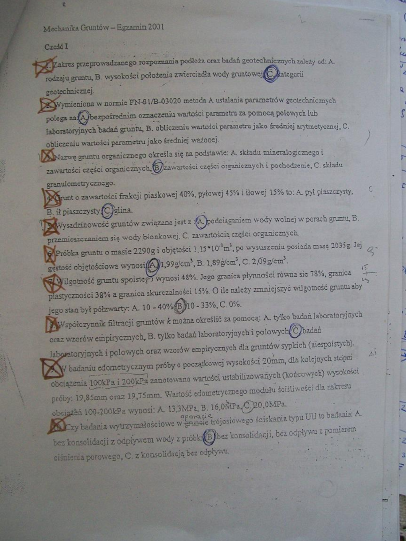 Mechanika Gruntów – Egzamin 2001
Część 1
Zakres przeprowadzanego rozpoznania podłoża oraz badań geotechnicznych zależy od: A.
rodzaju gruntu, B. wysokości położenia zwierciadła wody gruntowej, C. kategorii
geotechnicznej.
Wymieniona w normie PN-81/B-03020 metoda A ustalania parametrów geotechnicznych
polega na: A. bezpośrednim oznaczaniu wartości parametru za pomocą polowych lub
laboratoryjnych badań gruntu, B. obliczeniu wartości parametru jako średniej arytmetycznej, C.
obliczaniu wartości parametru jako średniej ważonej.
Nazwę gruntu organicznego określa się na podstawie: A. składu mineralogicznego i
zawartości części organicznych, B. zawartości części organicznych i pochodzenie, C. składu
granulometrycznego.
Grunt o zawartości frakcji piaskowej 40%, pyłowej 45% i iłowej 15% to: A. pył piaszczysty,
B. ił piaszczysty, C. glina.
Wysadzinowość gruntów związana jest z: A. podciąganiem wody wolnej w porach gruntu, B.
przemieszczaniem się wody błonkowej, C. zawartością części organicznych.
Próbka gruntu o masie 2290g i objętości po wysuszeniu posiada masę 2035g. Jej
gęstość objętościowa wynosi: A. 1,99g/cm³, B. 1,89g/cm³, C. 2,09g/cm³.
Wilgotność gruntu spoistego wynosi 48%. Jego granica płynności równa się 78%, granica
plastyczności 38% a granica skurczalności 15%. O ile należy zmniejszyć wilgotność gruntu aby
jego stan był półzwarty: A. 10 - 40%, B. 10 - 33%, C. 0%.
Współczynnik filtracji gruntów k można określić za pomocą: A. tylko badań laboratoryjnych
oraz wzorów empirycznych, B. tylko badań laboratoryjnych i polowych, C. badań
laboratoryjnych i polowych oraz wzorów empirycznych dla gruntów sypkich (niespoistych).
W badaniu edometrycznym próby o początkowej wysokości 20mm, dla kolejnych stopni
obciążenia 100kPa i 200kPa zanotowano wartości ustabilizowanych (końcowych) wysokości
próby: 19,85mm oraz 19,75mm. Wartość edometrycznego modułu ściśliwości dla zakresu
obciążeń 100-200kPa wynosi: A. 13,3MPa, B. 16,0MPa, C. 20,0MPa.
Czy badania wytrzymałościowe w trójosiowego ściskania typu UU to badania: A.
bez konsolidacji z odpływem wody z próbki, B. bez konsolidacji, bez odpływu i pomiarem
ciśnienia porowego, C. z konsolidacją bez odpływu.